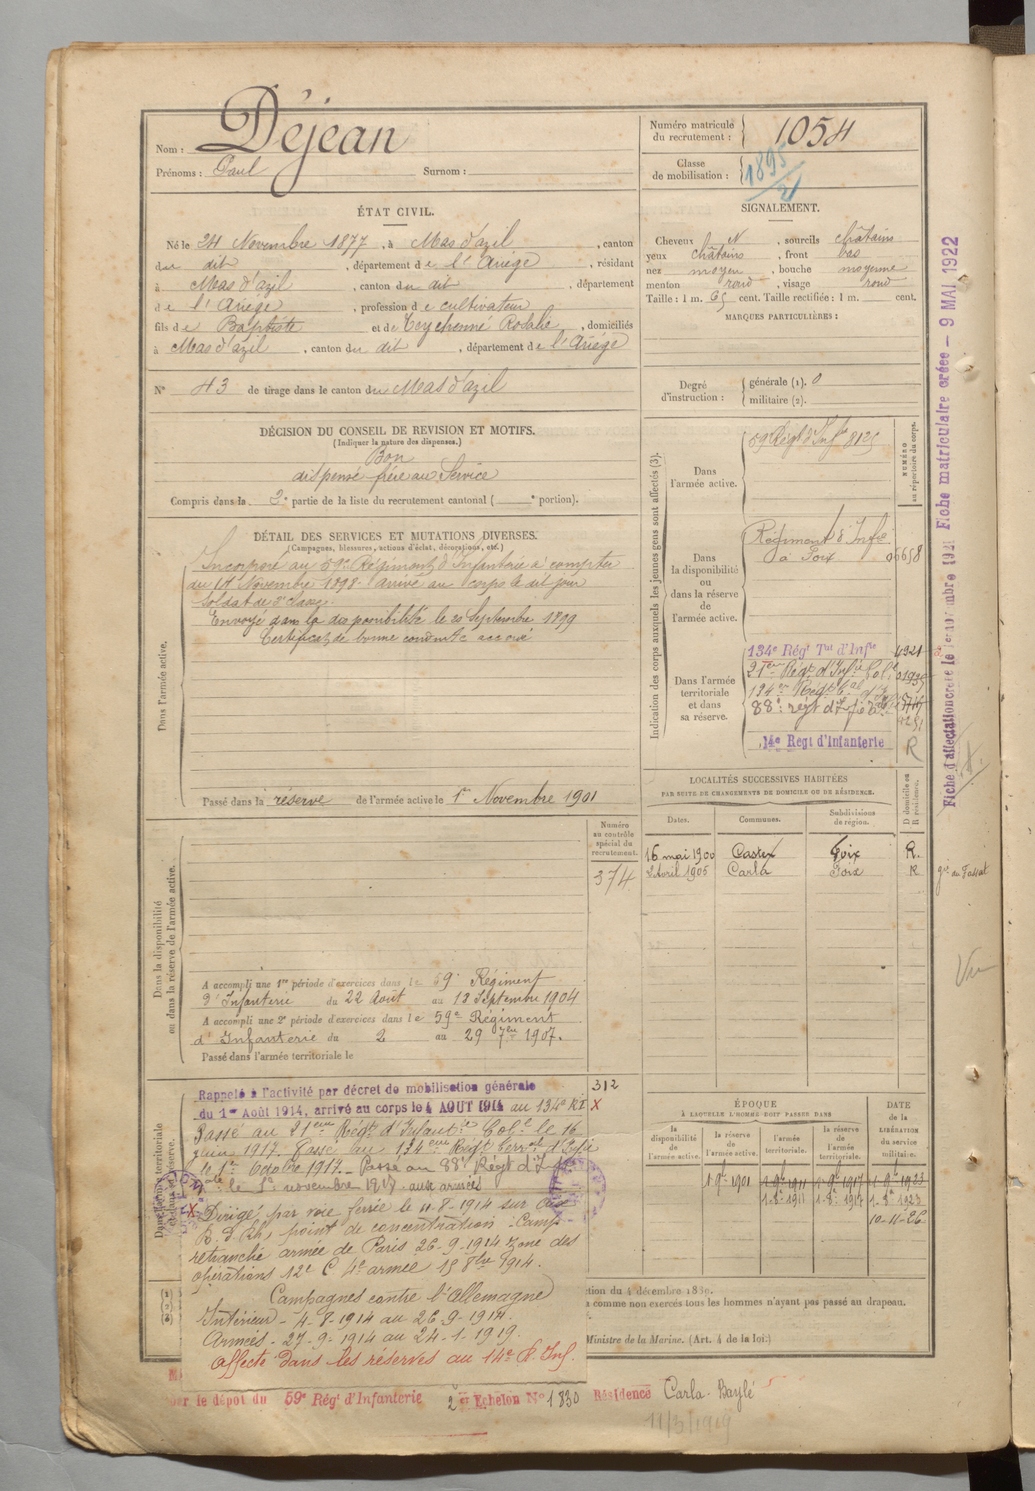 Nom : Déjean
Prénoms : Paul Surnom :
Numéro matricule du recrutement : 1054
Classe de mobilisation : 1895/21
ÉTAT CIVIL.
Né le 24 Novembre 1877, à Mas d'azil, canton
du dit, département de l'Ariège, résidant
à Mas d'azil, canton du dit, département
de l'Ariége, profession de cultivateur
fils de Baptiste et de Teychenné Rosalie, domiciliés
à Mas d'azil, canton du dit, département de l'Ariége
N° 43 de tirage dans le canton du Mas d'azil
SIGNALEMENT.
Cheveux N, sourcils châtains
yeux châtains, front bas
nez moyen, bouche moyenne
menton rond, visage rond
Taille : 1 m. 65 cent. Taille rectifiée : 1 m. cent.
MARQUES PARTICULIÈRES :
Degré d'instruction : générale (1). 0
militaire (2).
DÉCISION DU CONSEIL DE REVISION ET MOTIFS.
(Indiquer la nature des dispenses.)
Bon
dispensé frère au Service
Compris dans la 2e partie de la liste du recrutement cantonal ( e portion).
DÉTAIL DES SERVICES ET MUTATIONS DIVERSES.
(Campagnes, blessures, actions d'éclat, décorations, etc.)
Dans l'armée active.
Incorporé au 59e Régiment d'Infanterie à compter
du 14 Novembre 1898. arrivé au corps le dit jour
Soldat de 2e classe.
Envoyé dans la disponibilité le 20 Septembre 1899
Certificat de bonne conduite accordé
Passé dans la réserve de l'armée active le 1er Novembre 1901
Indication des corps auxquels les jeunes gens sont affectés (3).
NUMÉRO au répertoire du corps.
Dans l'armée active.
59e Régt d'Infie 8125
Dans la disponibilité ou dans la réserve de l'armée active.
Régiment d'Infie
à Foix 06658
Dans l'armée territoriale et dans sa réserve.
134e Régt Tal d'Infie 4921
21eme Régt d'Infie Cole 01935
134eme Régt
88e régt d'Infie
14e Régt d'Infanterie R
Fiche d'affectation créée le 1er novembre 1921 Fiche matriculaire créée - 9 MAI 1922
LOCALITÉS SUCCESSIVES HABITÉES
PAR SUITE DE CHANGEMENTS DE DOMICILE OU DE RÉSIDENCE.
D domicile ou R résidence.
Dates. Communes. Subdivisions de région.
16 mai 1900 Castex Foix R.
2 Avril 1905 Carla Foix R
Dans la disponibilité ou dans la réserve de l'armée active.
Numéro au contrôle spécial du recrutement.
374
A accompli une 1re période d'exercices dans le 59e Régiment
d'Infanterie du 22 Août au 18 Septembre 1904
A accompli une 2e période d'exercices dans le 59e Régiment
d'Infanterie du 2 au 29 7bre 1907.
Passé dans l'armée territoriale le
312
Rappelé à l'activité par décret de mobilisation générale
du 1er Août 1914, arrivé au corps le 4 AOUT 1914 au 134e RI X
Passé au 21eme Régt d'Infanterie Cole le 16
juin 1917. Passé au 134eme Régt Terral d'Infie
le 1er Octobre 1917. Passé au 88e Régt d'Inf
le 1er novembre 1917 aux armées
X Dirigé par voie ferrée le 11-8-1914 sur
point de concentration. Camp
retranché armée de Paris 26-9-1914 zone des
opérations 12e C 4e armée 15 8bre 1914.
Campagnes contre l'Allemagne
Intérieur - 4-8-1914 au 26-9-1914.
Armées - 27-9-1914 au 24-1-1919.
Affecté dans les réserves au 14e R. Inf.
ÉPOQUE
À LAQUELLE L'HOMME DOIT PASSER DANS
DATE DE LA LIBÉRATION du service militaire.
la disponibilité de l'armée active. la réserve de l'armée active. l'armée territoriale. la réserve de l'armée territoriale.
1-9bre-1901 1-9bre-1911 1-9bre-1917 1-9bre-1923
1-8bre-1911 1-8bre-1917 1-8bre-1923
10-11-26
ction du 4 décembre 1889.
comme non exercés tous les hommes n'ayant pas passé au drapeau.
Ministre de la Marine. (Art. 4 de la loi.)
par le dépôt du 59e Régt d'Infanterie 2e Echelon N° 1830 Résidence Carla-Baylé
11/3/1919